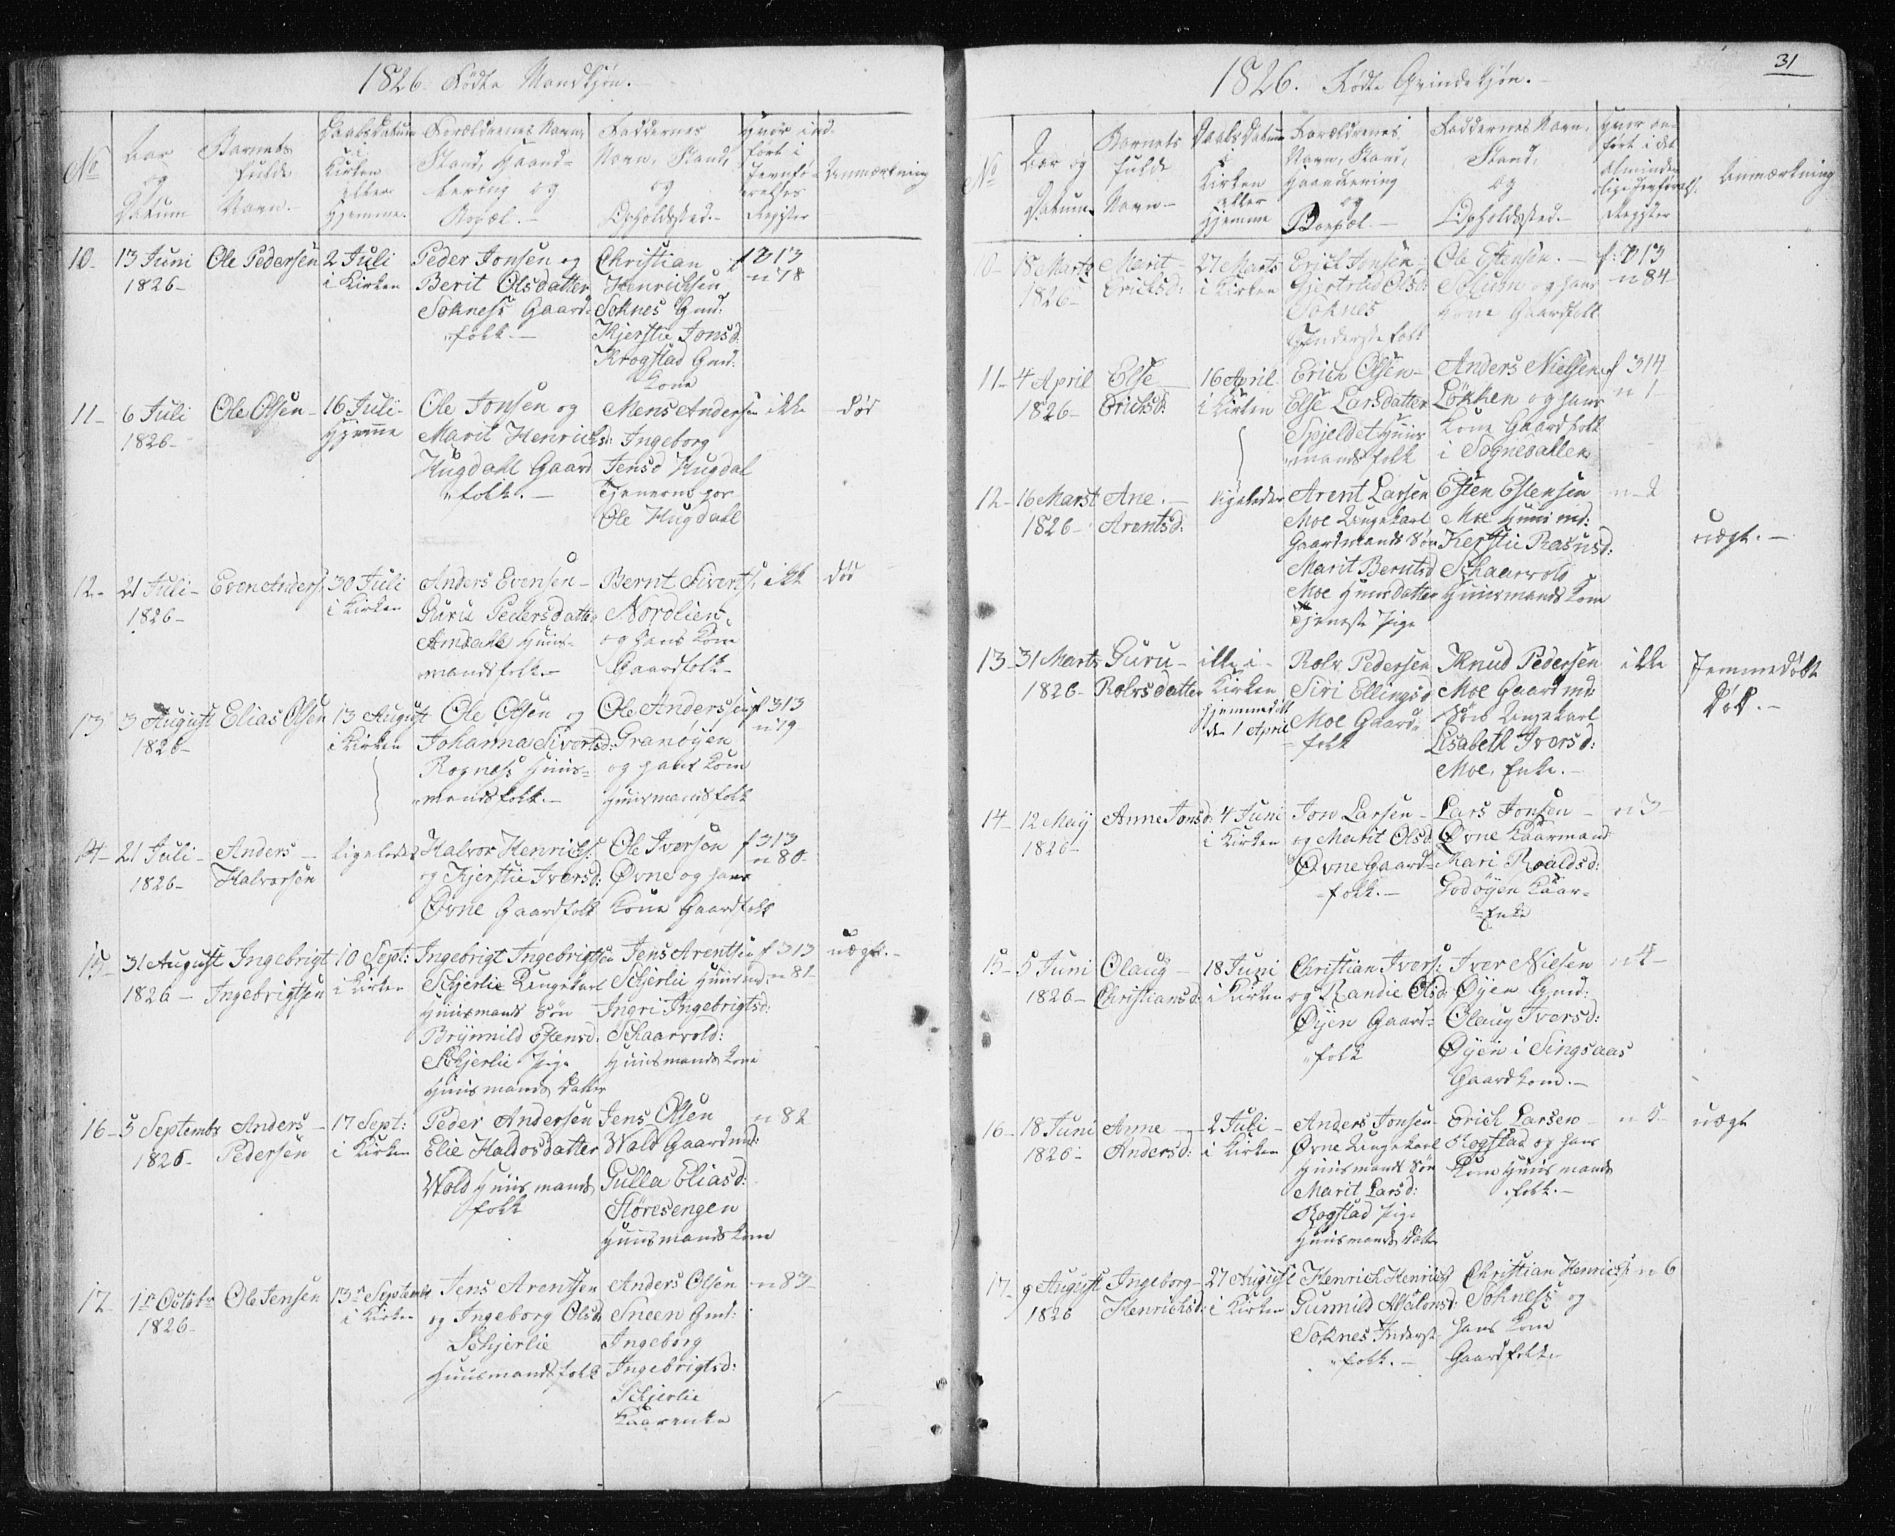 1826. Fødte Mandkjøn.
No
Aar
og
Datum
Barnets
fulde
Navn.
Daabsdatum
i
Kirken
eller
Hjemme.
Forældrenes Navn,
Stand, Haand-
tering og
Bopæl.
Faddernes
Navn, Stand,
og
Opholdssted.
Hvor ind-
ført i
Jevnfø-
relses
Register
Anmærkning
10-
13 Juni
1826-
Ole Pedersen
2 Juli
i Kirken
Peder Jonsen og
Berit Olsdatter
Soknes Gaard-
folk.-
Christian
Henrichsen
Soknes Gmd:
Kjerstie Jonsd:
Krogstad Gmd.
Kone
f 313
n 78
11-
6 Juli
1826-
Ole Olsen-
16 Juli-
Hjemme
Ole Jonsen og
Marit Henrichsd:
Hugdahl Gaard
folk.-
Mens Andersen
Ingeborg
Jensd Hugdal
Tjenerne hos
Ole Hugdahl
ikke
død
12-
21 Juli-
1826-
Even Anders:
30 Juli
i Kirken
Anders Evensen-
Guru Pedersdatter
Amdahl Huus-
mandsfolk.-
Bernt Siverts:
Nordlien,
og hans Kone
Gaardfolk-
ikke
død
13
3 August
1826-
Elias Olsen
13 August
i Kirken
Ole Olsen og
Johanna Sivertsd:
Rognes Huus-
mandsfolk.-
Ole Andersen
Granøyen
og hans Kone
Huusmandsfolk
f 313
n 79-
14-
21 Juli-
1826-
Anders-
Halvorsen
ligeledes
Halvor Henrichs:
og Kjerstie Iversd:
Øvne Gaardfolk
Ole Iversen
Øvne og hans
Kone Gaardfolk
f 313
n 80-
15-
31 August
1826-
Ingebrigt
Ingebrigtsen
10 Sept:
i Kirken
Ingebrigt Ingebrigtsen
Schjerlie Ungekarl
Huusmands Søn
Brynnild Estensd.
Schjerlie Pige
Huusmands Datter
Jens Arentsen
Schjerlie Huusmd:
Ingri Ingebrigtsd:
Skaarvold:
Huusmands Kone
f 313
n 81-
uægte.-
16-
5 Septembr
1826-
Anders-
Pedersen
17 Sept:
i Kirken
Peder Andersen
Elie Haldosdatter
Wold Huusmands
folk
Jens Olsen
Wold Gaardmd:
Gulla Eliasd:
Støresengen
Huusmands Kone
n 82
17-
1de Octobr
1826-
Ole Jensen
13de Septembr
i Kirken
Jens Arentsen
og Ingeborg Olsd
Schjerlie
Huusmandsfolk
Anders Olsen
Sneen Gmd:
Ingeborg
Ingebrigtsd:
Schjerlie
Kaarenke
n 83-
1826. Fødte Qvindekjøn.-
31
No
Aar og
Datum
Barnets
fulde
Navn-
Daabs Datum
i
Kirken
eller
Hjemme
Forældrenes
Navn, Stand,
Haandtering
og
Bopæl-
Faddernes Navn,
Stand,
og
Opholdssted.-
Hvor an-
ført i det
almindelige
Jevnførelses
Register
Anmærkning
10-
18 Marts
1826-
Marit
Ericksd:
27 Marts
i Kirken
Erick Jonsen,
Gjertrud Olsd:
Soknes
Inderstefolk
Ole Estensen.-
og hans
Kone Gaardfolk
f: 313
n 84-
11-
4 April
1826-
Else
Ericksd:
16 April
i Kirken
Erich Olsen-
Else Larsdatter
Spjeldet Huus
mandsfolk
Anders Nielsen
Løkken og hans
Kone Gaardfolk
i Sognedallen
f 314
n 1-
12-
16 Marst
1826-
Ane.-
Arentsd:
ligeledes
Arent Larsen
Moe Ungekarl
Gaardmands Søn
Marit Berntsd
Moe Huusdatter
Tjeneste Pige
Esten Estensen
Moe Huusmd:
Kerstie Rasmsd:
Skaarvold
Huusmands Kone
n 2
uægt.-
13-
31 Marts
1826-
Guru-
Rolvsdatter
ikke i-
Kirken
hjemmedøbt
den 1 April
Rolv Pedersen
Siri Ellingsd
Moe Gaard-
folk
Knud Pedersen
Moe Gaardmd:
Søn Ungekarl
Lisabeth Iversd:
Moe, Enke.-
ikke
Jemmedøbt
død.-
14-
12 Maij
1826-
Anne Jonsd:
4 Juni
i Kirken
Jon Larsen-
og Marit Olsd:
Øvne Gaard-
folk.-
Lars Jonsen-
Øvne Kaarmand
Mari Roaldsd:
Godøyen Kaar-
Enke
n 3-
15-
5 Juni
1826-
Olaug-
Christiansd:
18 Juni
i Kirken
Christian Ivers:
og Randie Olsd:
Øyen Gaard-
folk
Iver Nielsen
Øyen Gmd:
Olaug Iversd:
Øyen i Singsaas
Gaardkone.-
n 4-
16-
18 Juni
1826-
Anne-
Andersd:
2 Juli-
i Kirken
Anders Jonsen
Øvne Ungekarl
Huusmands Søn
Marit Larsd:
Rogstad Pige
Huusmands Datter
Erich Larsen-
Rogstad og hans
Kone Huusmands
folk.-
n 5-
uægt
17-
9 August
1826
Ingeborg-
Henricksd:
27 August
i Kirken
Henrich Henrichs:
Gunnild Absalonsd:
Soknes Inderst-
folk.-
Christian Henrichs:
Soknes og
hans Kone
Gaardfolk.-
n 6